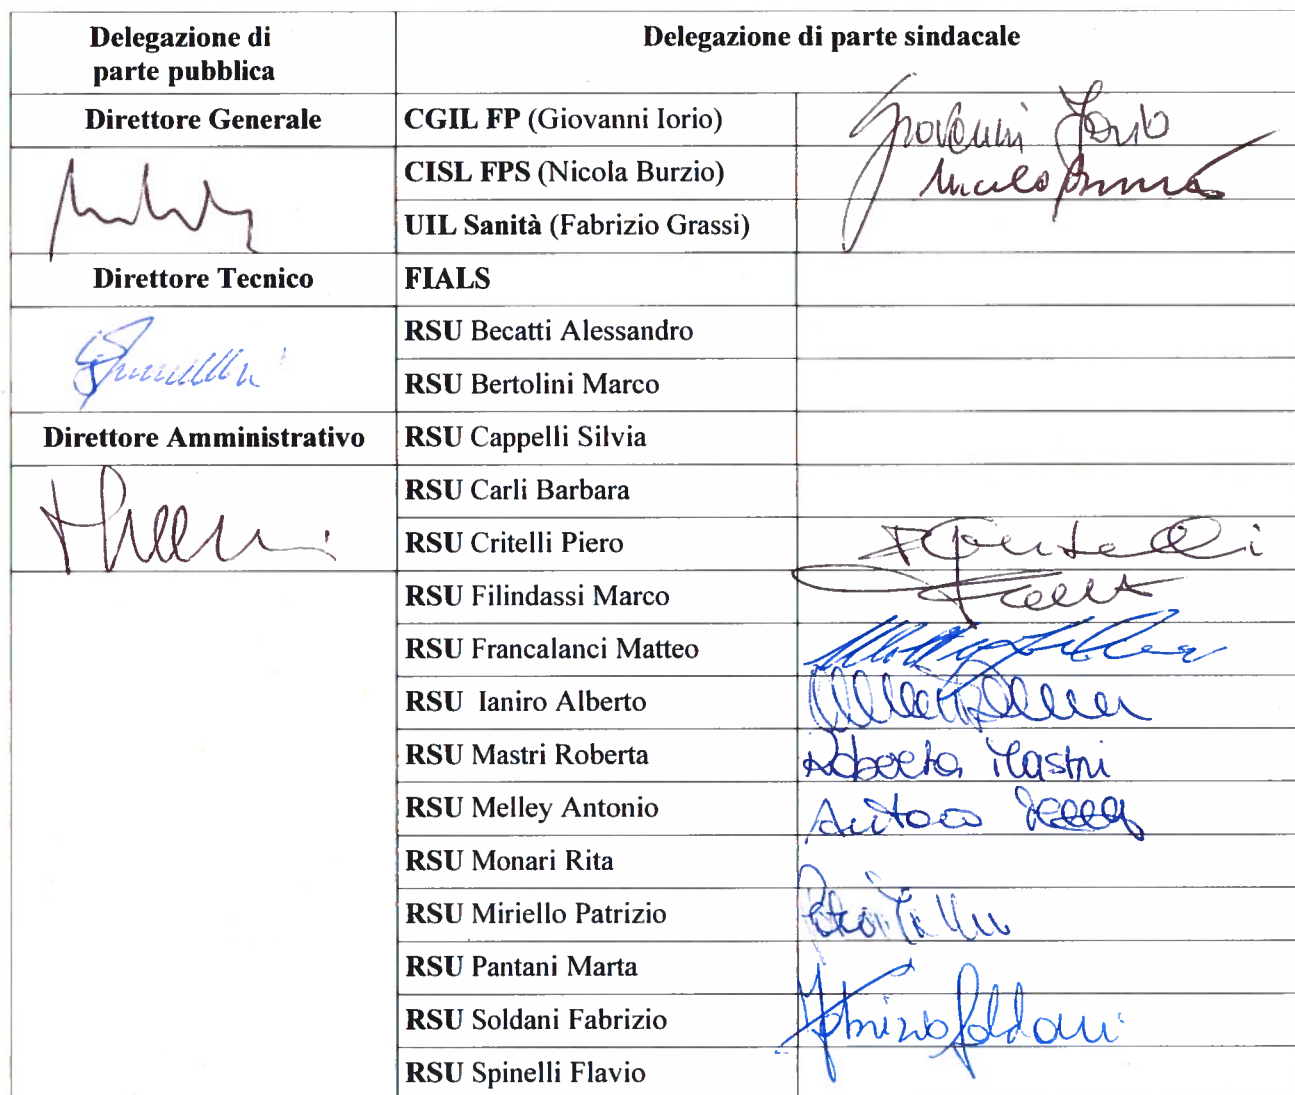 Delegazione di
parte pubblica
Delegazione di parte sindacale
Direttore Generale
CGIL FP (Giovanni Iorio)
Giovanni Iorio
CISL FPS (Nicola Burzio)
UIL Sanità (Fabrizio Grassi)
Direttore Tecnico
FIALS
RSU Becatti Alessandro
RSU Bertolini Marco
Direttore Amministrativo
RSU Cappelli Silvia
RSU Carli Barbara
RSU Critelli Piero
RSU Filindassi Marco
RSU Francalanci Matteo
RSU Ianiro Alberto
RSU Mastri Roberta
Roberta Mastri
RSU Melley Antonio
RSU Monari Rita
RSU Miriello Patrizio
RSU Pantani Marta
RSU Soldani Fabrizio
Fabrizio Soldani
RSU Spinelli Flavio